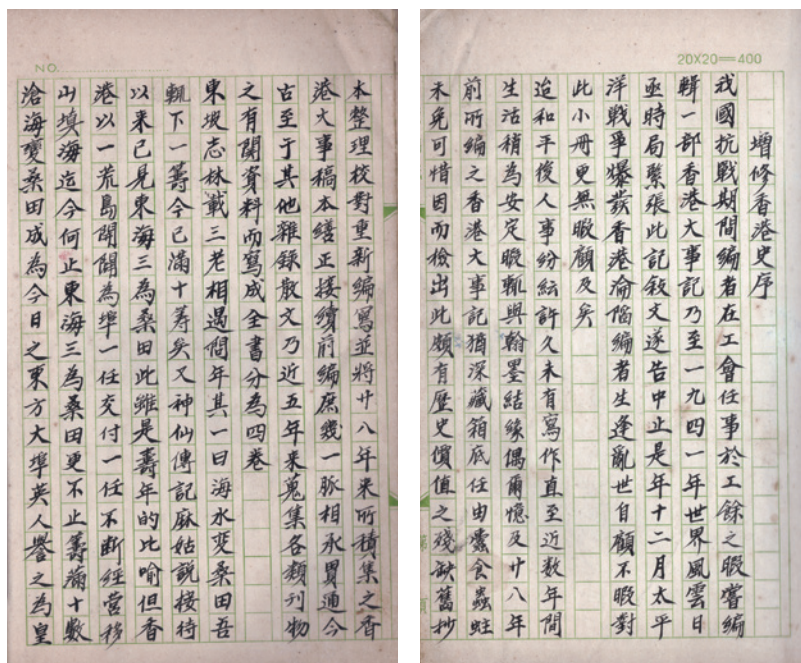 20X20=400
增修香港史序
我國抗戰期間編者在工會任事於工餘之暇嘗編
輯一部香港大事記乃至一九四一年世界風雲日
亟時局緊張此記敘文遂告中止是年十二月太平
洋戰爭爆發香港淪陷編者生逢亂世自顧不暇對
此小冊更無暇顧及矣
迨和平後人事紛紜許久未有寫作直至近数年間
生活稍為安定暇輒與翰墨結緣偶爾憶及廿八年
前所編之香港大事記猶深藏箱底任由蠹食蟲蛀
未免可惜因而檢出此頗有歷史價值之殘缺舊抄
NO.
本整理校對重新編寫並將廿八年來所積集之香
港大事稿本繕正接續前編庶幾一脈相承貫通今
古至于其他雜錄散文乃近五年來蒐集各類刊物
之有關資料而寫成全書分為四卷
東坡志林載三老相遇問年其一曰海水变桑田吾
輒下一籌今已滿十籌矣又神仙傳記麻姑說接待
以来已見東海三為桑田此雖是壽年的比喻但香
港以一荒島開闢為埠一任交付一任不断經營移
山填海迄今何止東海三為桑田更不止籌滿十數
滄海變桑田成為今日之東方大埠英人譽之為皇